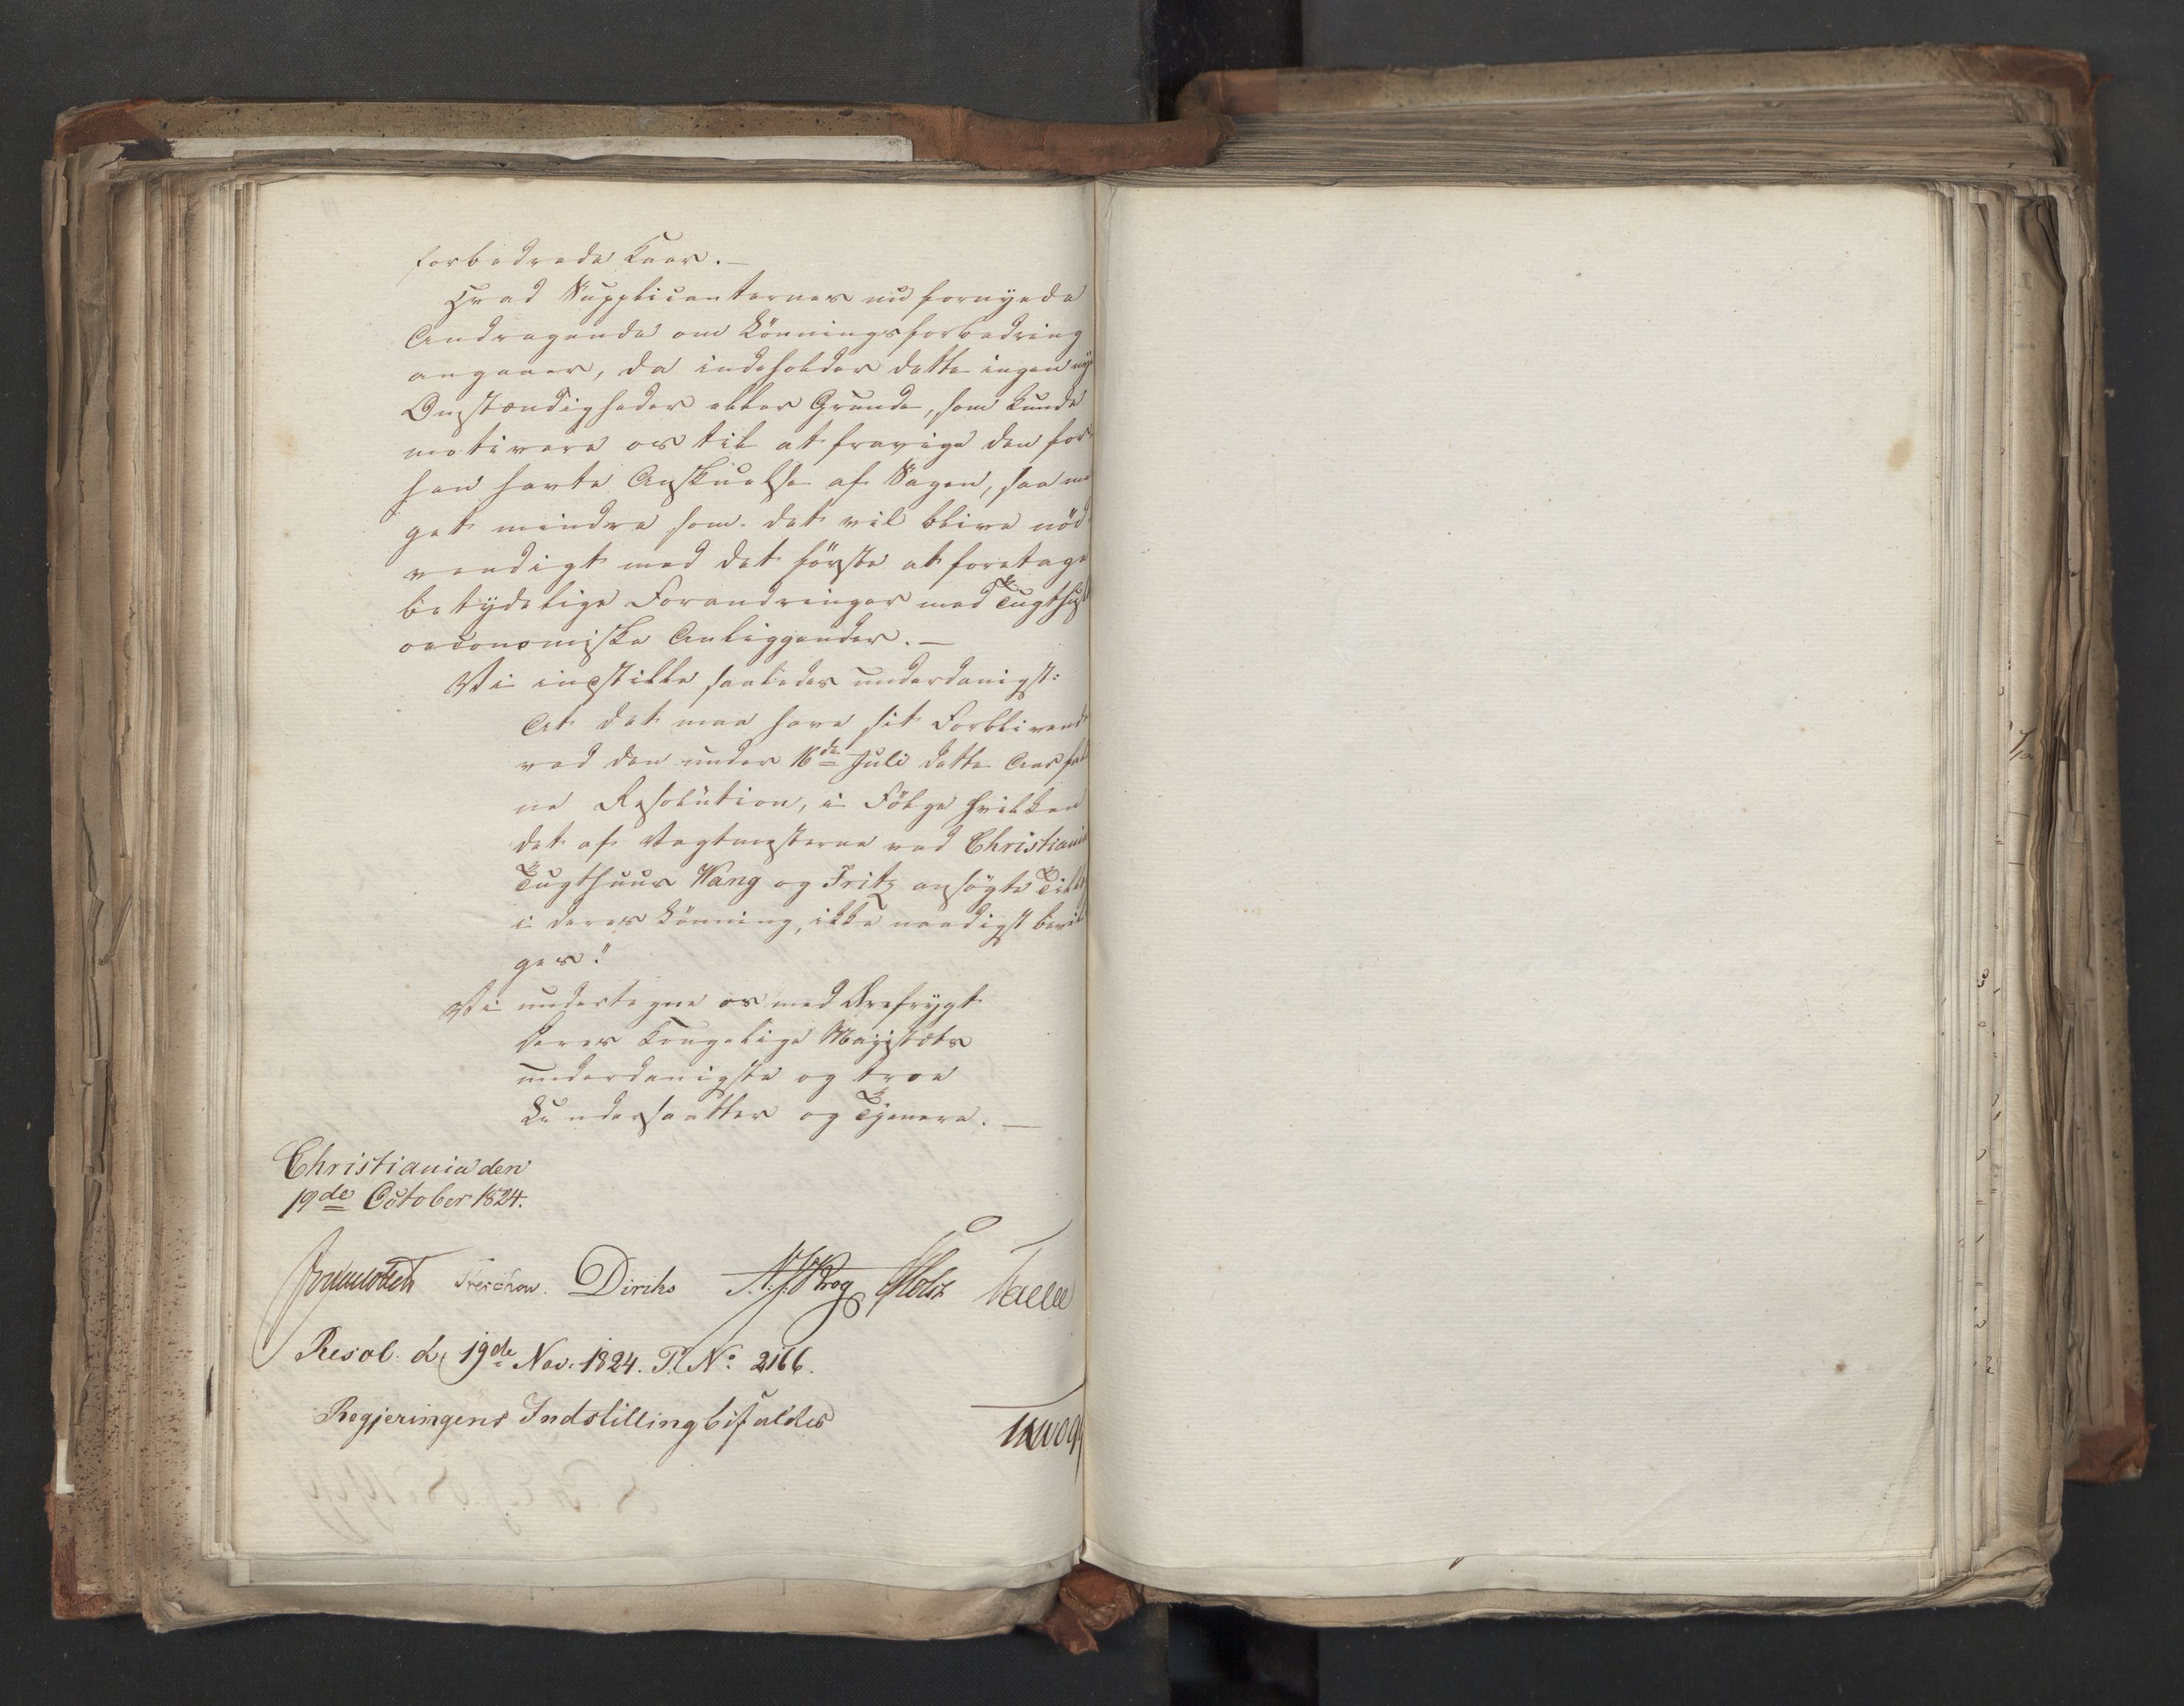 forbedrede Kaar. —
Hvad Supplicanternes nu fornyede
Andragende om Lønningsforbedring
angaaer, da indeholder dette ingen nye
Omstændigheder eller Grunde, som kunde
motivere os til at fravige den for-
hen havte Anskuelse af Sagen, saa me
get mindre som det vil blive nöd-
vendigt med det förste at foretage
betydelige Forandringer med Tugthusets
oeconomiske Anliggender. —
Vi indstille saaledes underdanigst:
At det maa have sit Forblivende
ved den under 16de Juli dette Aar fat
ne Resolution, i Fölge hvilken
det af Vagtmesterne ved Christiania
Tugthuus Wang og Fritz ansögte Tillæg
i deres Lönning, ikke naadigst bevil
ges."
Vi undertegne os med Ærefrygt
Deres Kongelige Majestæts
underdanigste og troe
Undersaatter og Tjenere. —
Christiania den
19de October 1824.
Sommerhielm Treschow. Diriks N. J. Krog Holst Fasting
Resol. d. 19de Nov. 1824. P. No. 2166.
Regjeringens Indstilling bifaldes